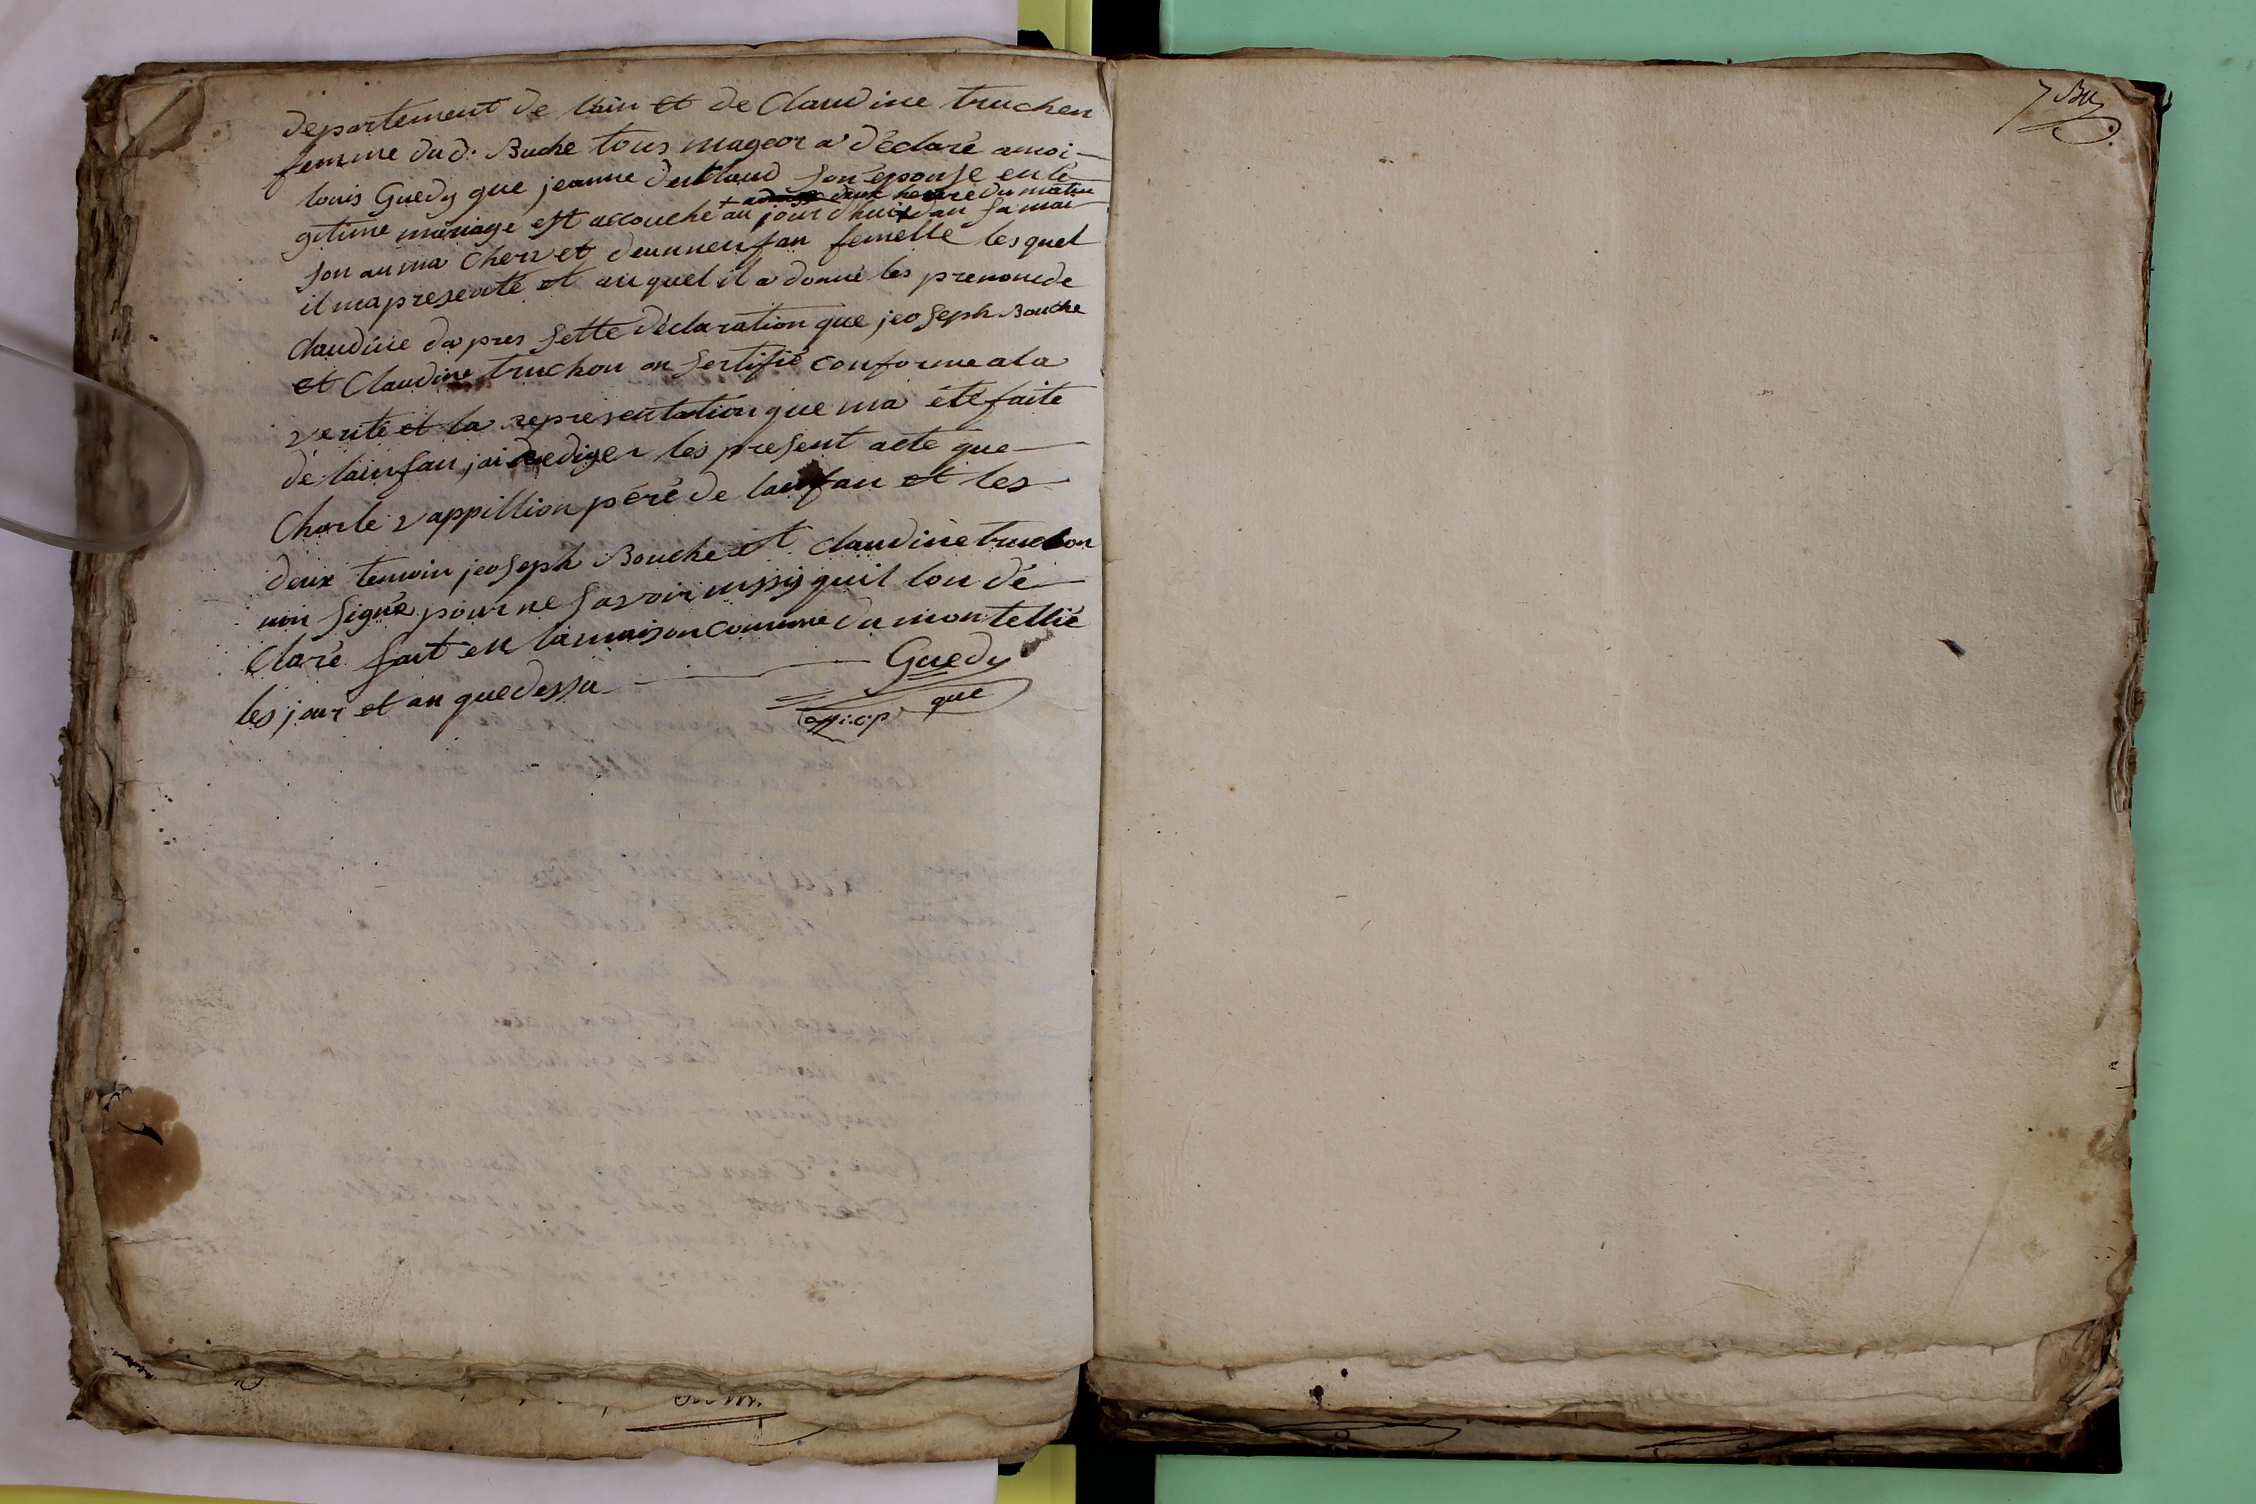 departement de lain et de Claudine truchen
femme du d. Buche tous mageor a déclaré a moi
louis Guedy que jeanne son épouse en lé
deux heure du matin
gitime mariage est accouché + au jour dhui dan sa mai
son au ma Chervet deun neufan femelle lesquel
il ma presenté et au quel il a donné les prenom de
claudine da pres sette déclaration que jeoseph Bouche
et Claudine truchon on sertifié conforme a la
verité et la representation que ma été faite
dé lainfan jai rediger les present acte que
Charle vappillion péré de lainfan et les
deux temoin jeoseph Bouche et claudine truchon
non signé pour ne savoir ussij quil lon dé
claré fait en la maison comune du montellié
les jour et an que dessu Guedy
offi.c.p que
7 Bu